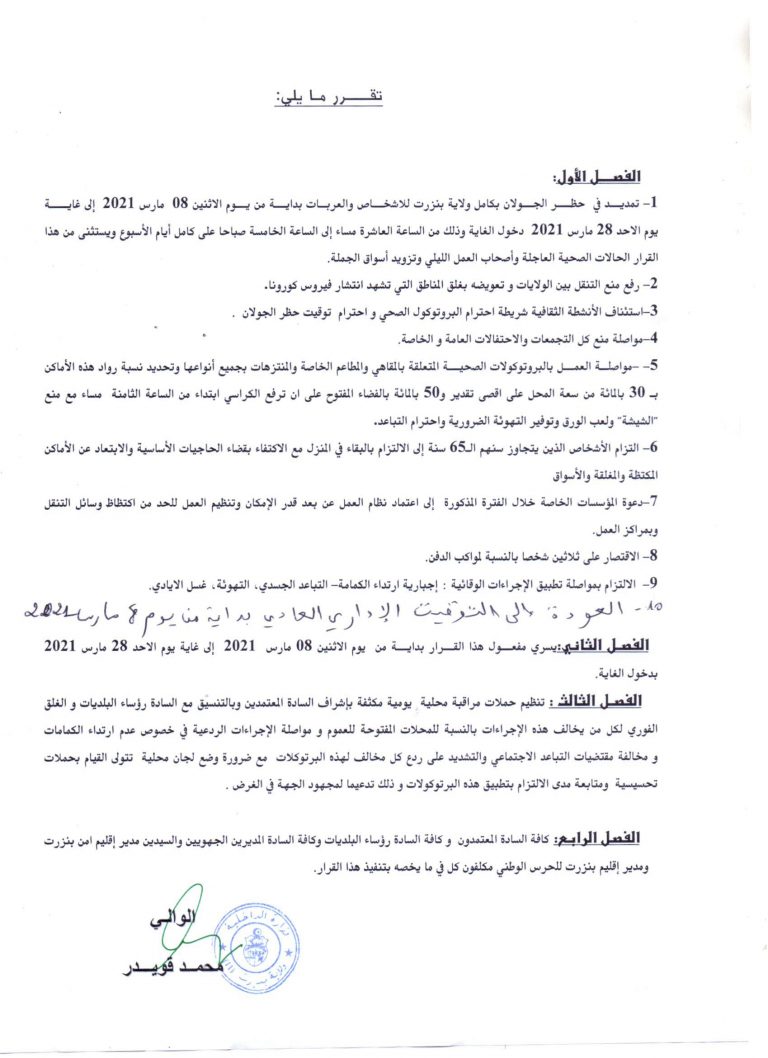 تقـــرر مـا يلي:
الفصـــل الأول:
1- تمديـــد في حظـــر الجـــولان بكامل ولاية بنزرت للاشخـــاص والعربـــات بدايـــة من يـــوم الاثنين 08 مارس 2021 إلى غايـــة
يوم الاحد 28 مارس 2021 دخول الغاية وذلك من الساعة العاشرة مساء إلى الساعة الخامسة صباحا على كامل أيام الأسبوع ويستثنى من هذا
القرار الحالات الصحية العاجلة وأصحاب العمل الليلي وتزويد أسواق الجملة.
2- رفع منع التنقل بين الولايات و تعويضه بغلق المناطق التي تشهد انتشار فيروس كورونا.
3-استئناف الأنشطة الثقافية شريطة احترام البروتوكول الصحي و احترام توقيت حظر الجولان .
4-مواصلة منع كل التجمعات والاحتفالات العامة و الخاصة.
5- -مواصلـــة العمـــل بالبروتوكولات الصحيـــة المتعلقة بالمقاهي والمطاعم الخاصة والمنتزهات بجميع أنواعها وتحديد نسبة رواد هذه الأماكن
بـ 30 بالمائة من سعة المحل على اقصى تقدير و50 بالمائة بالفضاء المفتوح على ان ترفع الكراسي ابتداء من الساعة الثامنة مساء مع منع
"الشيشة" ولعب الورق وتوفير التهوئة الضرورية واحترام التباعد.
6- التزام الأشخاص الذين يتجاوز سنهم الـ65 سنة إلى الالتزام بالبقاء في المنزل مع الاكتفاء بقضاء الحاجيات الأساسية والابتعاد عن الأماكن
المكتظة والمغلقة والأسواق
7-دعوة المؤسسات الخاصة خلال الفترة المذكورة إلى اعتماد نظام العمل عن بعد قدر الإمكان وتنظيم العمل للحد من اكتظاظ وسائل التنقل
وبمراكز العمل.
8- الاقتصار على ثلاثين شخصا بالنسبة لمواكب الدفن.
9- الالتزام بمواصلة تطبيق الإجراءات الوقائية : إجبارية ارتداء الكمامة- التباعد الجسدي، التهوئة، غسل الايادي.
10- العودة الى التوقيت الإداري العادي بداية من يوم 8 مارس 2021
الفصـل الثانـي:يسري مفعـول هذا القـــرار بدايـــة من يوم الاثنين 08 مارس 2021 إلى غاية يوم الاحد 28 مارس 2021
بدخول الغاية.
الفصـل الثالث : تنظيم حملات مراقبة محلية يومية مكثفة بإشراف السادة المعتمدين وبالتنسيق مع السادة رؤساء البلديات و الغلق
الفوري لكل من يخالف هذه الإجراءات بالنسبة للمحلات المفتوحة للعموم و مواصلة الإجراءات الردعية في خصوص عدم ارتداء الكمامات
و مخالفة مقتضيات التباعد الاجتماعي والتشديد على ردع كل مخالف لهذه البرتوكلات مع ضرورة وضع لجان محلية تتولى القيام بحملات
تحسيسية ومتابعة مدى الالتزام بتطبيق هذه البرتوكولات و ذلك تدعيما لمجهود الجهة في الغرض .
الفصل الرابـع: كافة السادة المعتمدون و كافة السادة رؤساء البلديات وكافة السادة المديرين الجهويين والسيدين مدير إقليم امن بنزرت
ومدير إقليم بنزرت للحرس الوطني مكلفون كل في ما يخصه بتنفيذ هذا القرار.
الوالـي
محمـد قويـدر
وزارة الداخلية
ولاية بنزرت